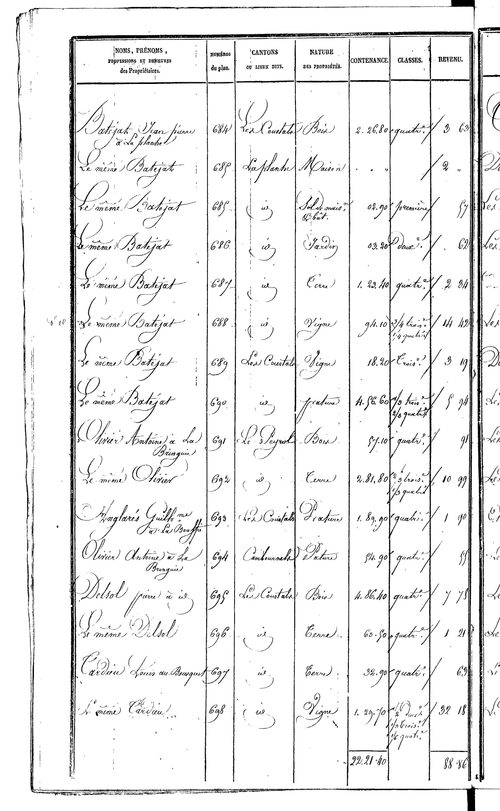 NOMS, PRÉNOMS, PROFESSIONS ET DEMEURES des Propriétaires. NUMÉROS du plan. CANTONS OU LIEUX DITS. NATURE DES PROPRIÉTÉS. CONTENANCE CLASSES. REVENU.
Batijat Jean pierre à La plante 684 Les Coustals Bois 2. 26.80 quatr.e 3 63
Le même Batijat 685 La plante Maison . . „ 2 „
Le même Batijat 685 id Sol de mais.n & bât. 02.90 première 57
Le même Batijat 686 id Jardin 03.20 Deux.e 62
Le même Batijat 687 id Terre 1. 23.40 quatr.e 2 84
Le même Batijat 688 id Vigne 94.10 3/4 trois.e 1/4 quatr.e 14 42
Le même Batijat 689 Les Coustals Vigne 18.20 Trois.e 3 19
Le même Batijat 690 id pature 4. 56.60 trois.e quatr.e 5 94
Olivier Antoine à La Brunguie 691 Le Peyrol Bois 57.10 quatr.e 91
Le même Olivier 692 id Terre 2. 81.80 trois.e quatr.e 10 99
Anglarès Guilh.me à La Bouffie 693 Les Coustals Pature 1. 89.90 quatr.e 1 90
Olivier Antoine à La Brunguie 694 Pature 54.90 quatr.e 55
Delsol pierre à id 695 Les Coustals Bois 4. 86.40 quatr.e 7 78
Le même Delsol 696 id Terre 60.50 quatr.e 1 21
Cardieu Louis au Bousquet 697 id Terre 32.90 quatr.e 63
Le même Cardieu 698 id Vigne 1. 29.70 Deux.e trois.e quatr.e 32 18
22. 21. 40 88.86